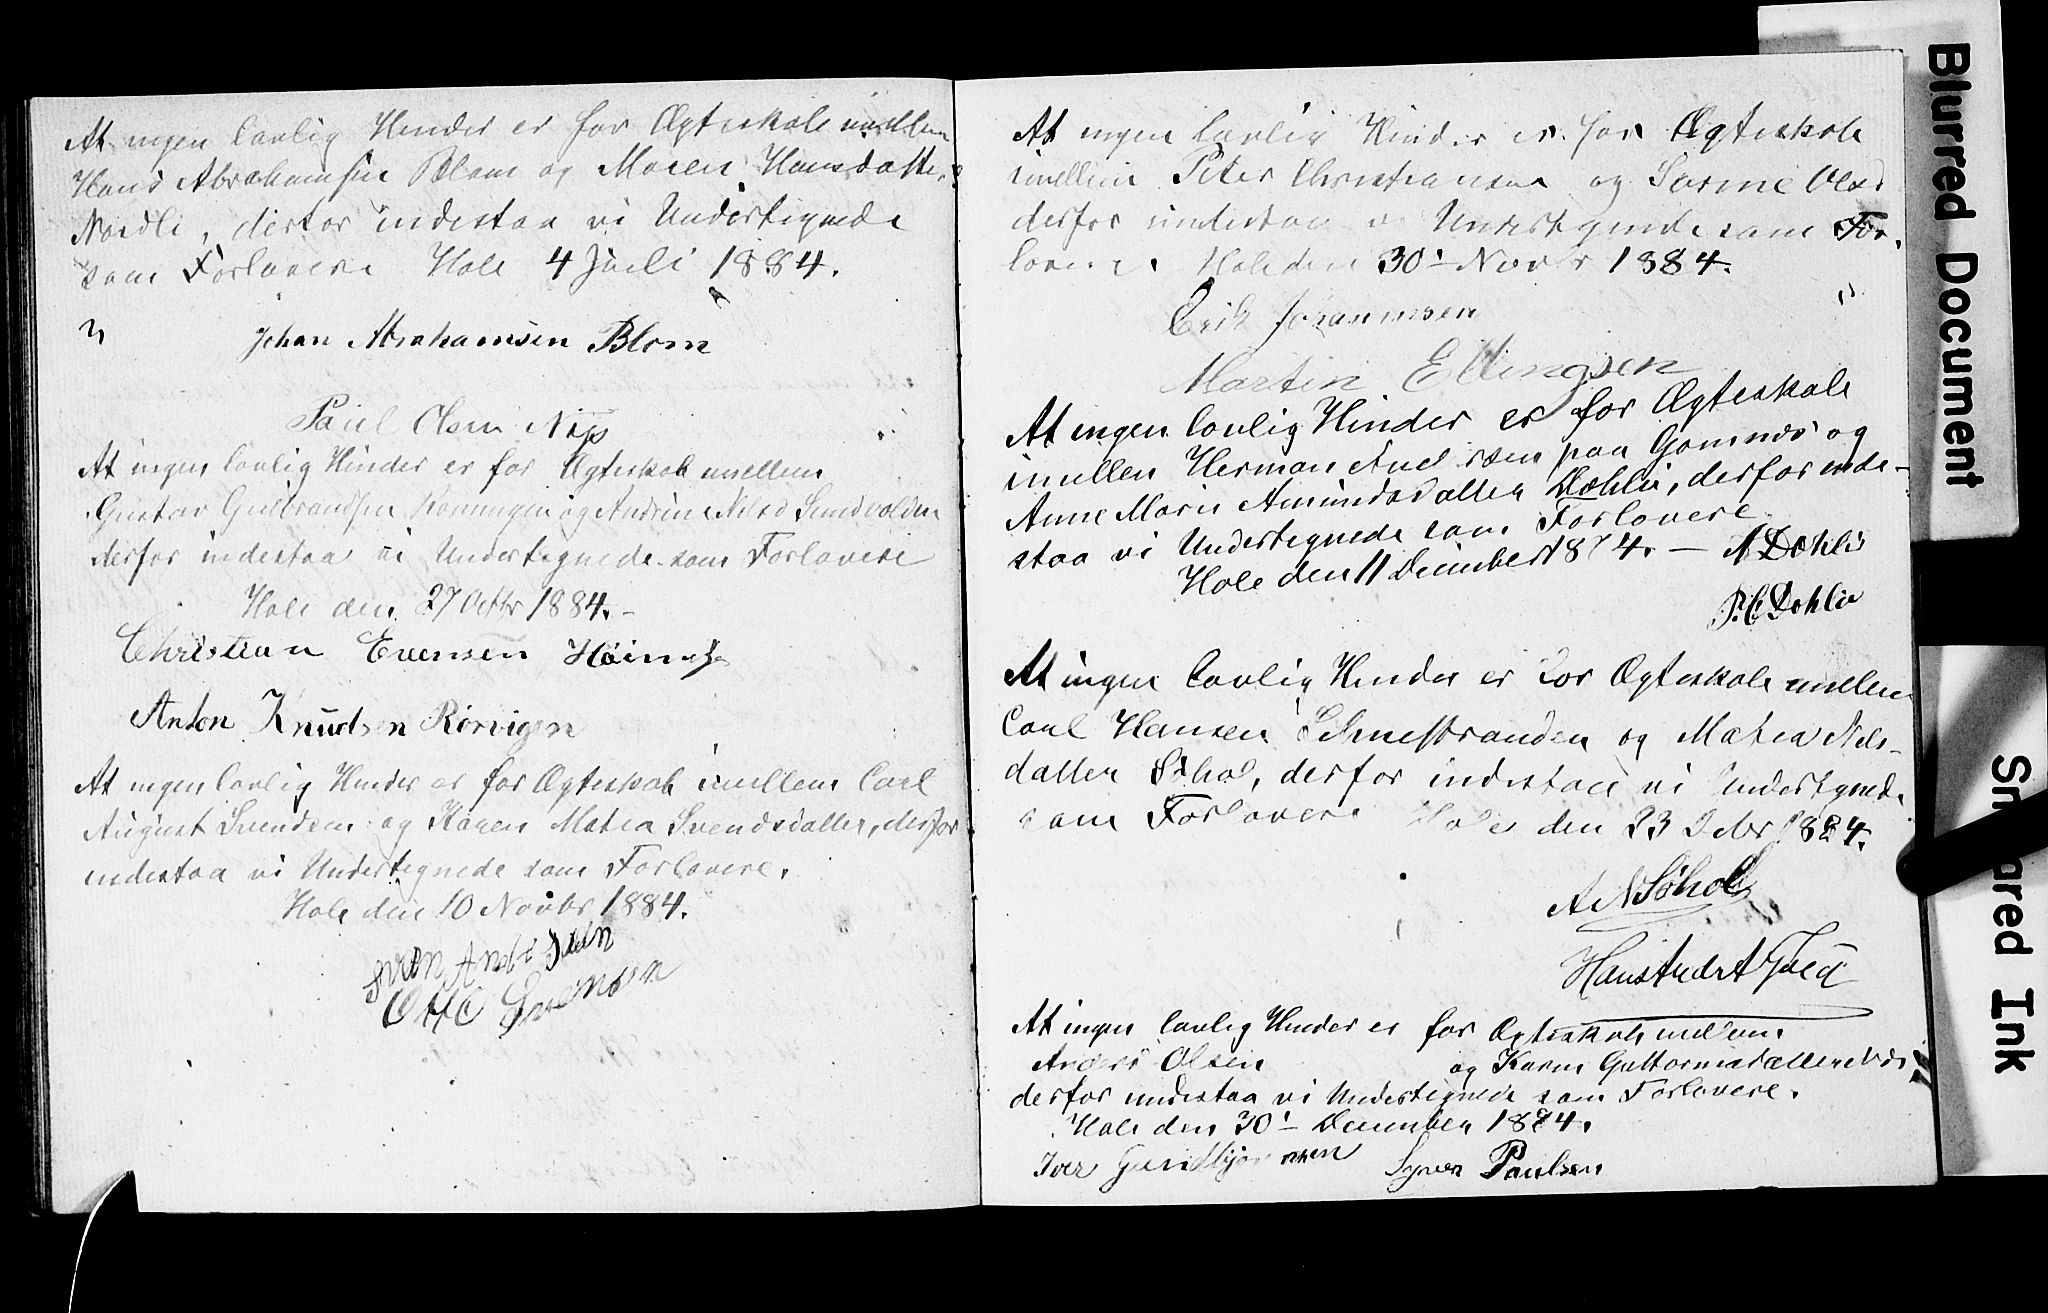 At ingen lovlig Hinder er for Ægteskab imellem
Hans Abrahamsen Blom og Maren Hansdatter
Nordli, derfor indestaa vi Undertegnede
som Forlovere Hole 4 Juli 1884.
Johan Abrahamsen Blom
Paul Olsen
At ingen lovlig Hinder er for Ægteskab imellem
Gustav Gulbrandsen og Andrine Nilsd Sundvolden
derfor indestaa vi Undertegnede som Forlovere
Hole den 27 Octbr 1884.-
Christian Evensen
Anton Knudsen Rørvigen
At ingen lovlig Hinder er for Ægteskab imellem Carl
August Svendsen og Karen Matea Svendsdatter, derfor
indestaa vi Undertegnede som Forlovere.
Hole den 10 Novbr 1884.
Sven
Otto Svensen
At ingen lovlig Hinder er for Ægteskab
imellem Peter Christiansen og Olsd
derfor indestaa vi Undertegnede som For-
lovere. Hole den 30- Novbr 1884.
Erik Johannesen
Martin Ellingsen
At ingen lovlig Hinder er for Ægteskab
imellem Herman paa Gomnes og
Anne Marie Amundsdatter Døhlie, derfor inde-
staa vi Undertegnede som Forlovere.
Hole den 11 December 1874. — A Døhlie
P. C Døhlie
At ingen lovlig Hinder er for Ægteskab imellem
Carl Hansen og Matea Nils-
datter Søhol, derfor indestaa vi Undertegnede
som Forlovere Hole den 23 Decbr 1884.
A N Søhol
At ingen lovlig Hinder er for Ægteskab imellem
Anders Olsen og Karen Guttormsdatter
derfor indestaa vi Undertegnede som Forlovere.
Hole den 30- December 1874.
Iver Syver Paulsen
Blurred Document
Sm ared Ink